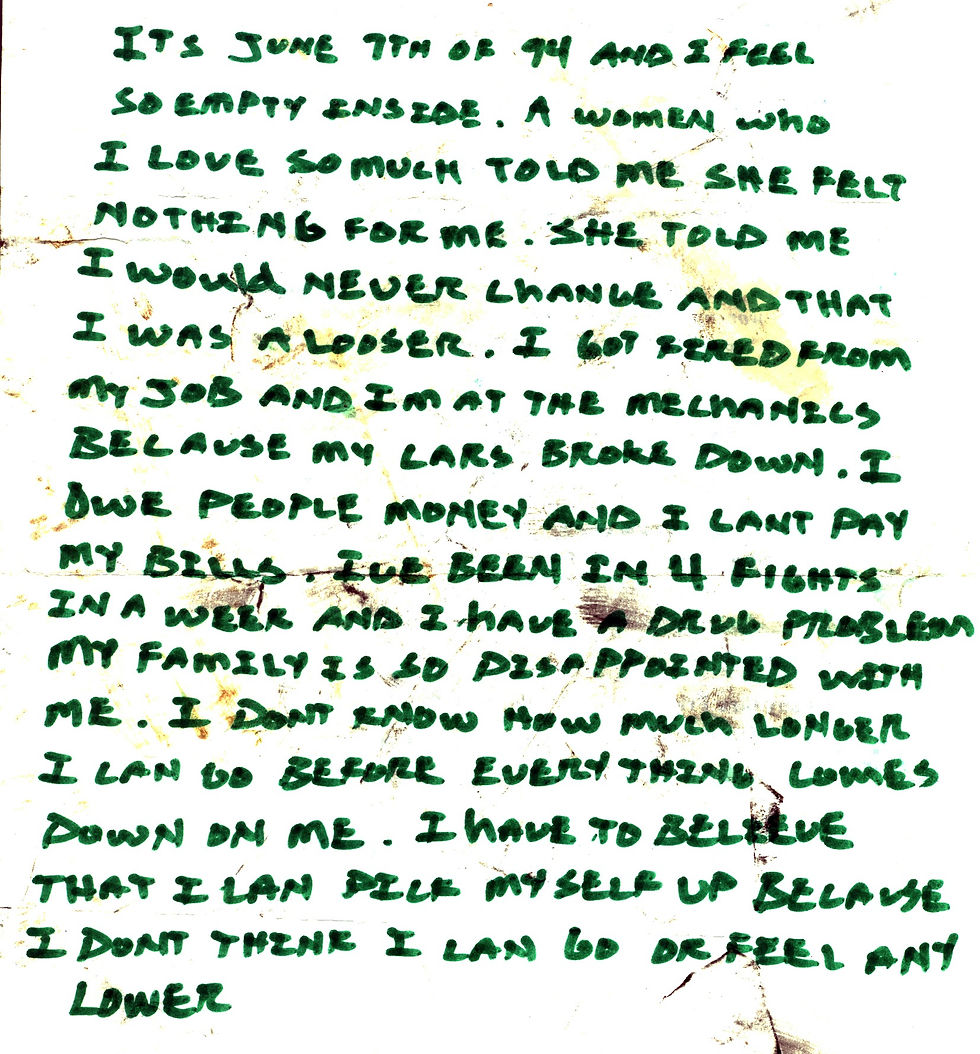 ITS JUNE 7TH OF 94 AND I FEEL
SO EMPTY INSIDE. A WOMEN WHO
I LOVE SO MUCH TOLD ME SHE FELT
NOTHING FOR ME. SHE TOLD ME
I WOULD NEVER CHANGE AND THAT
I WAS A LOOSER. I GOT FIRED FROM
MY JOB AND IM AT THE MECHANICS
BECAUSE MY CARS BROKE DOWN. I
OWE PEOPLE MONEY AND I CANT PAY
MY BILLS. IVE BEEN IN 4 FIGHTS
IN A WEEK AND I HAVE A DRUG PROBLEM
MY FAMILY IS SO DISAPPOINTED WITH
ME. I DONT KNOW HOW MUCH LONGER
I CAN GO BEFORE EVERYTHING COMES
DOWN ON ME. I HAVE TO BELIEVE
THAT I CAN PICK MYSELF UP BECAUSE
I DONT THINK I CAN GO OR FEEL ANY
LOWER